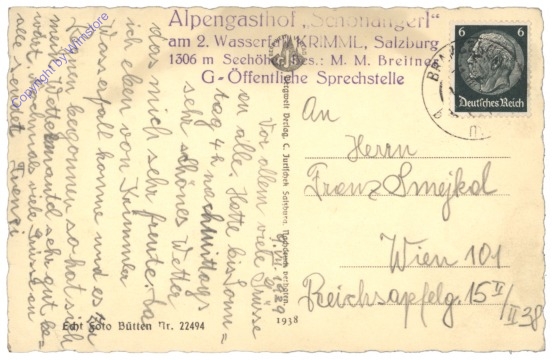 Alpengasthof „Schönangerl"
am 2. Wasserfall KRIMML, Salzburg
1306 m Seehöhe Bes.: M. M. Breitner
G-Öffentliche Sprechstelle
6 6
Deutsches Reich
An
Herrn
Franz Smejkal
Wien 101
Reichsapfelg. 15 II/II 38
Bergwelt Verlag, C. Jurischek Salzburg. Nachdruck verboten.
1938
9. VII. 1939
Vor allem viele Grüsse
an alle. Hatte bis Sonn=
tag 4h nachmittags
sehr schönes Wetter
das mich sehr freute. Da
ich eben von Krimmler
Wasserfall komme und es zu
kommen begonnen so hat sich
mein Wettermantel sehr gut be=
währt. Nochmals viele Grüsse an
alle sendet Franzi
Echt Foto Bütten Nr. 22494
Copyright by Whitestore